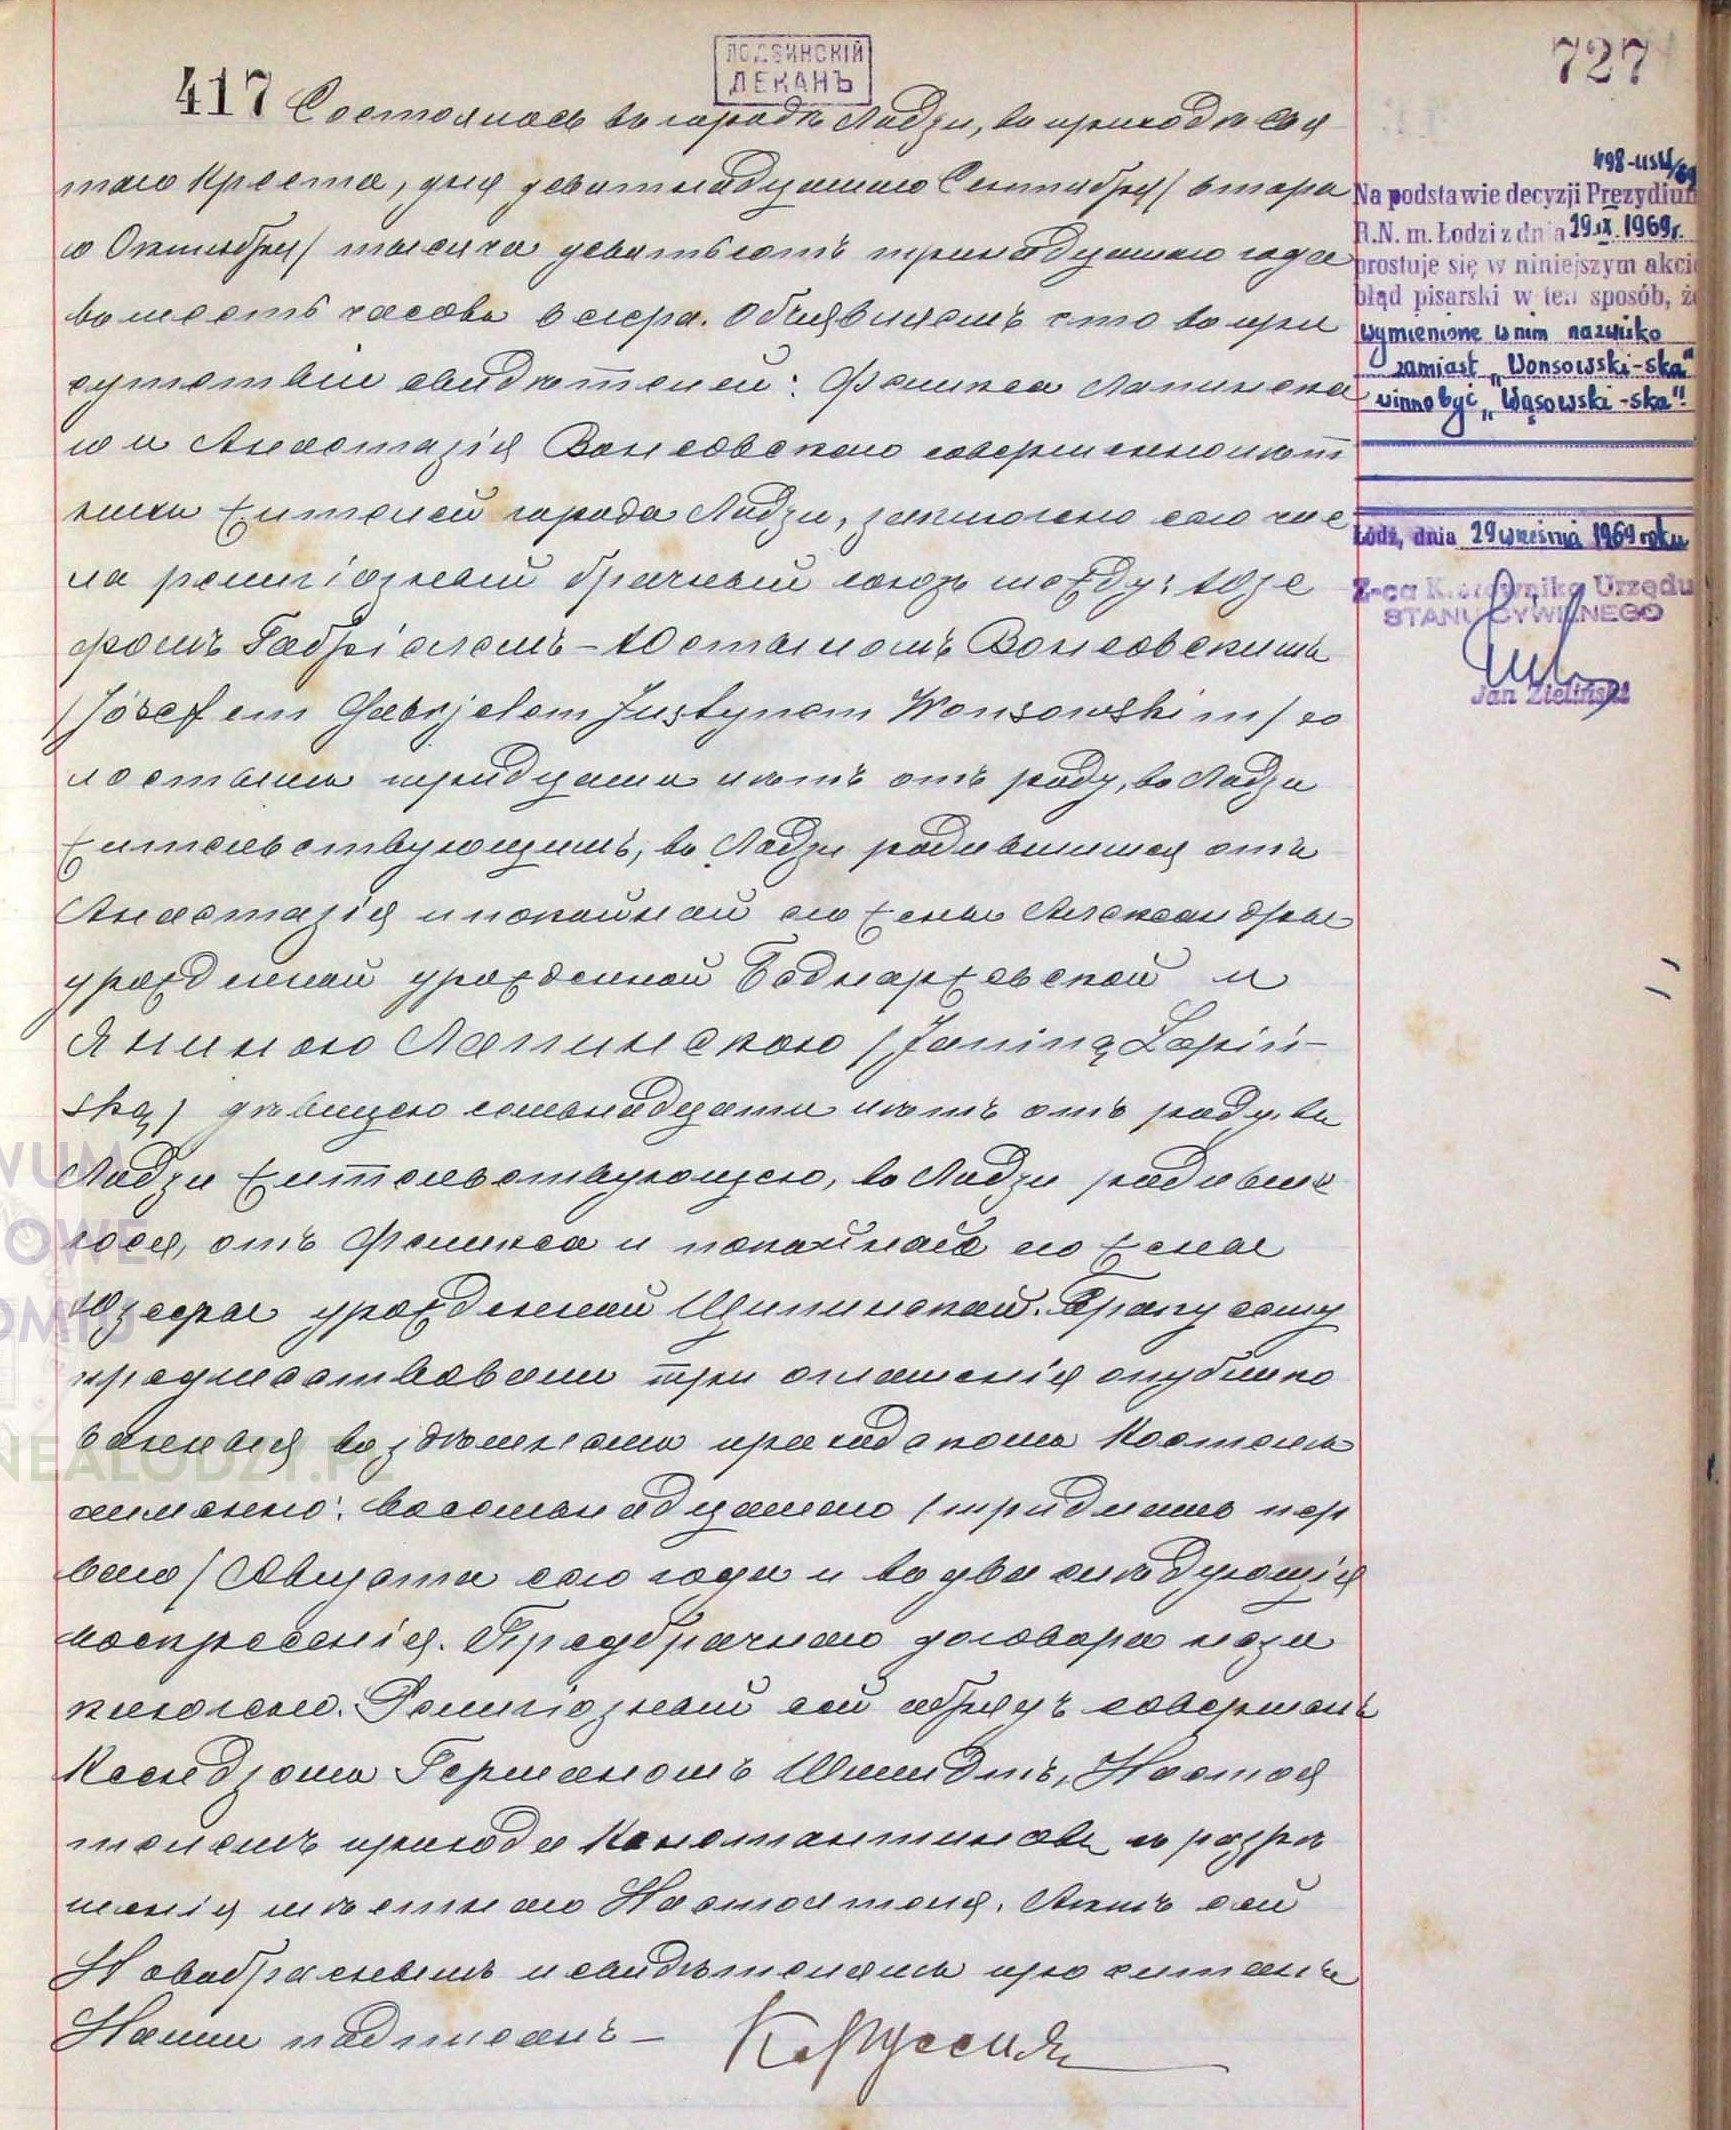 ЛОДЗИНСКІЙ
ДЕКАНЪ
727
417 Состоялось въ городѣ Лодзи, въ приходѣ Свя
таго Креста, дня девятнадцатаго Сентября / втора
го Октября / тысяча девятьсотъ тринадцатаго года
въ шесть часовъ вечера. Объявляемъ что въ при
сутствіи свидѣтелей: Феликса Лапинска
го и Анастазія Вонсовскаго совершеннолѣт
нихъ жителей города Лодзи, заключено сего чис
ла религіозный брачный союзъ между: Юзе
фомъ Габріелемъ-Юстыномъ Вонсовскимъ
/Józefem Gabrjelem Justynem Wonsowskim/ хо
лостымъ тридцати лѣтъ отъ роду, въ Лодзи
жительствующимъ, въ Лодзи родившимся отъ
Анастазія и покойной его жены Александры
урожденной урожденной Боднаржевской и
Яниною Лапинскою /Janiną Łapiń-
ską/ дѣвицею семьнадцати лѣтъ отъ роду, въ
Лодзи жительствующею, въ Лодзи родивше
юся, отъ Феликса и покойной его жены
Юзефы урожденной Щипинской. Браку сему
предшествовали три оглашенія опублико
ванныя въ здѣшнемъ приходскомъ Костелѣ
а именно: восемьнадцатаго / тридцать пер
ваго / Августа сего года и въ два слѣдующія
воскресенія. Предбрачнаго договора не за
ключено. Религіозный сей обрядъ совершенъ
Ксендзомъ Германомъ Шмидтъ, Настоя
телемъ прихода Константиновъ съ разрѣ
шенія мѣстнаго Настоятеля. Актъ сей
Новобрачнымъ и свидѣтелямъ прочитанъ
Нами подписанъ —
498-USW/69
Na podstawie decyzji Prezydium
R.N. m. Łodzi z dnia 29.IX.1969r.
prostuje się w niniejszym akcie
błąd pisarski w ten sposób, że
wymienione w nim nazwisko
zamiast „Wonsowski-ska"
winno być „Wąsowski-ska".
Łódź, dnia 29 września 1969 roku
Z-ca Kierownika Urzędu
STANU CYWILNEGO
Jan Zieliński